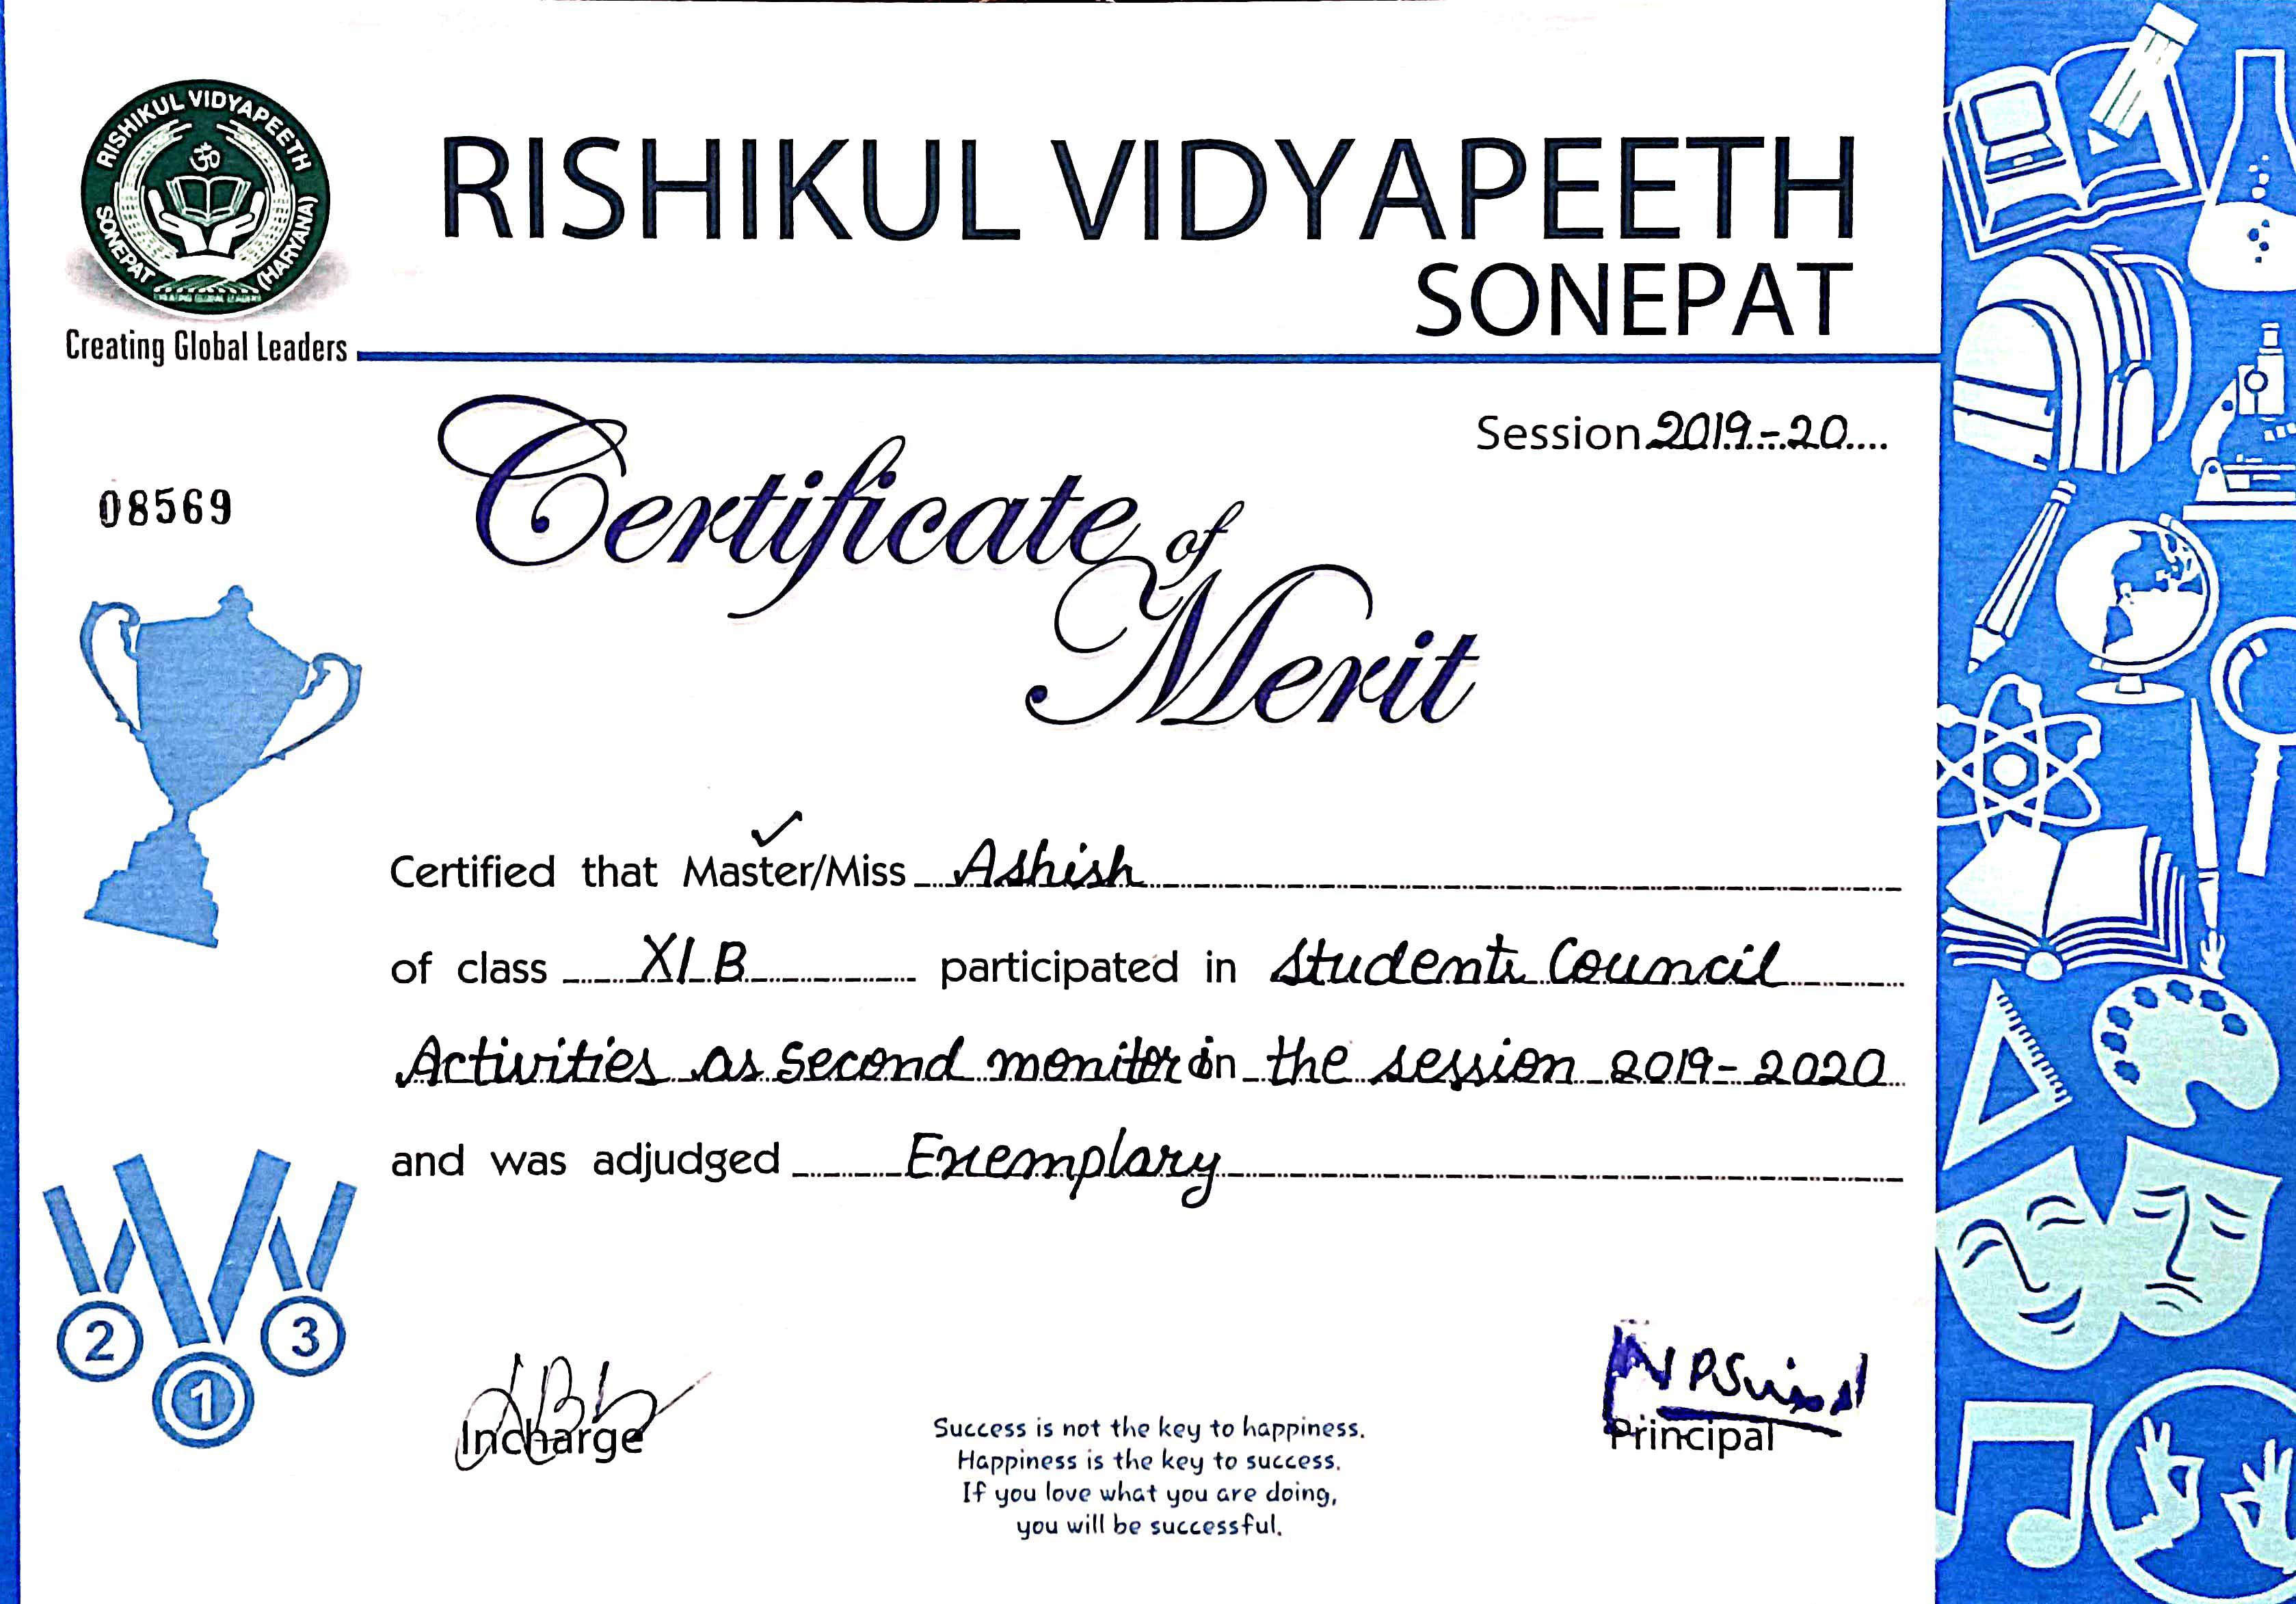 RISHIKUL VIDYAPEETH
SONEPAT (HARYANA)
CREATING GLOBAL LEADERS
Creating Global Leaders
RISHIKUL VIDYAPEETH
SONEPAT
Session 2019-20
08569
Certificate of
Merit
Certified that Master/Miss Ashish
of class XI B participated in Students Council
Activities as Second monitor in the session 2019-2020
and was adjudged Exemplary
2
1
3
Incharge
Success is not the key to happiness.
Happiness is the key to success.
If you love what you are doing,
you will be successful.
Principal